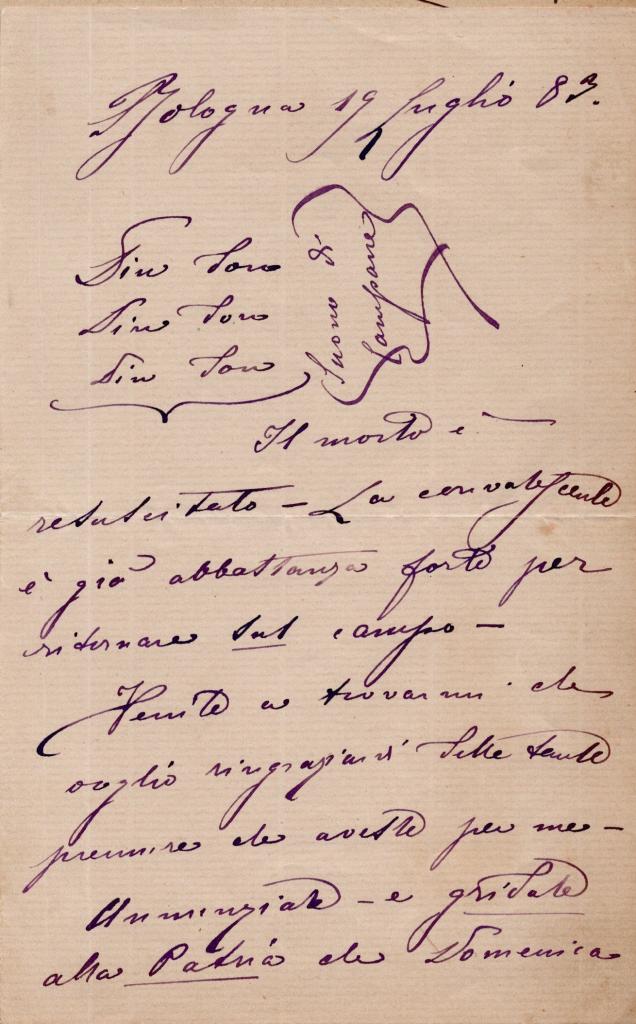 Bologna 19 Luglio 83.
Din Don
Din Don
Din Don
Suono di
Campane
Il morto è
resuscitato – La convalescente
è già abbastanza forte per
ritornare sul campo –
Venite a trovarmi che
voglio ringraziarvi delle tante
premure che aveste per me –
Annunziate – e gridate
alla Patria che Domenica